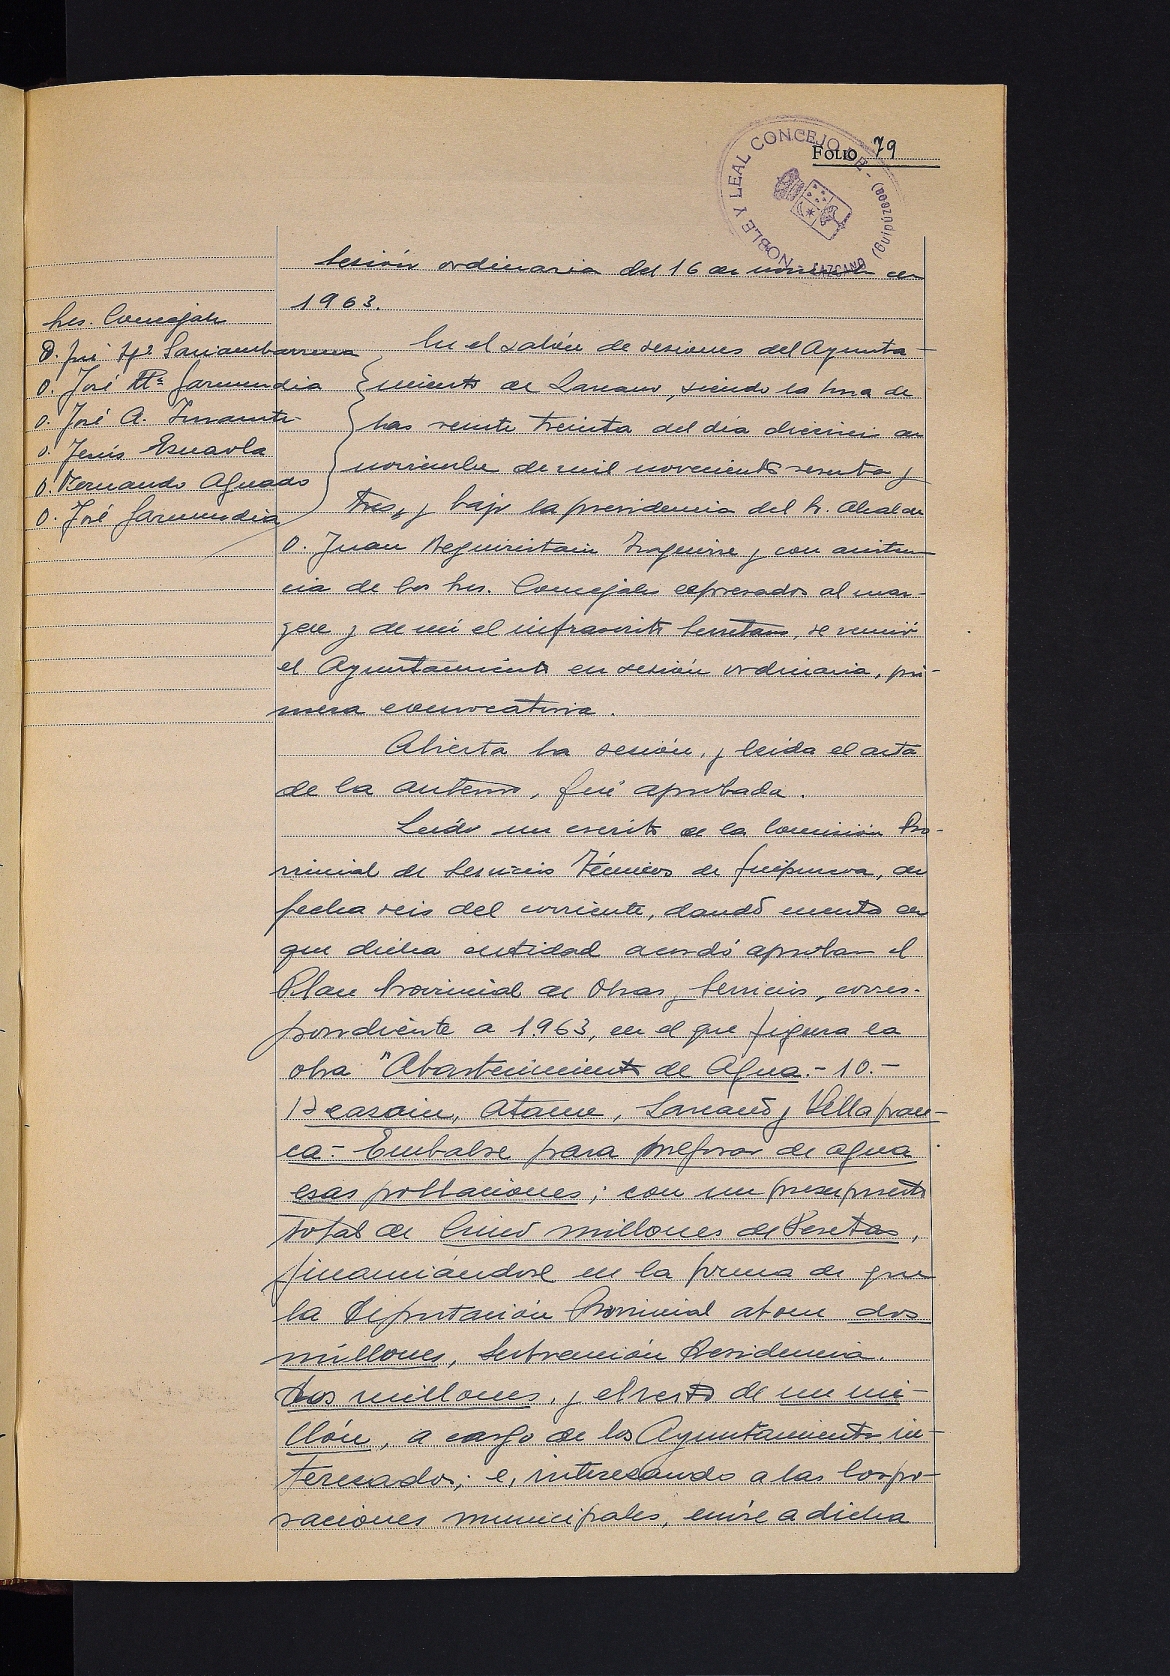 FOLIO 79
NOBLE Y LEAL CONCEJO DE - LAZCANO (Guipúzcoa)
Sesión ordinaria del 16 de noviembre de
1963.
Sres. Concejales
D. José Mª Garmendia
D. José A.
D. Jesús
D. Fernando Aguado
D. José Garmendia
En el salón de sesiones del Ayunta-
miento de Lazcano, siendo la hora de
las veinte treinta del dia dieciseis de
noviembre de mil novecientos sesenta y
tres, y bajo la presidencia del Sr. Alcalde
D. Juan Aguirre y con asisten
cia de los Sres. Concejales expresados al mar-
gen y de mi el infrascrito Secretario, se reunió
el Ayuntamiento en sesión ordinaria, pri-
mera convocatoria.
Abierta la sesión, y leida el acta
de la anterior, fué aprobada.
Leido un escrito de la Comisión Pro-
vincial de Servicios Técnicos de Guipuzcoa, de
fecha seis del corriente, dando cuenta de
que dicha entidad acordó aprobar el
Plan Provincial de Obras y Servicios, corres-
pondiente a 1.963, en el que figura la
obra "Abastecimiento de Agua.- 10.-
Beasain, Ataun, Lazcano y Villafran-
ca.- Embalse para mejorar de agua
esas poblaciones; con un presupuesto
total de Cinco millones de Pesetas,
financiándose en la forma de que
la Diputación Provincial abone dos
millones, Subvención Presidencia.
dos millones, y el resto de un mi-
llón, a cargo de los Ayuntamientos in-
teresados; e, interesando a las Corpo-
raciones municipales, envíe a dicha